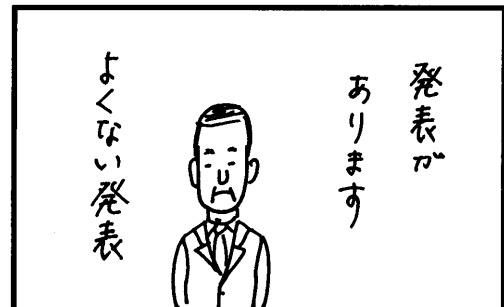 発表が
あります
よくない発表